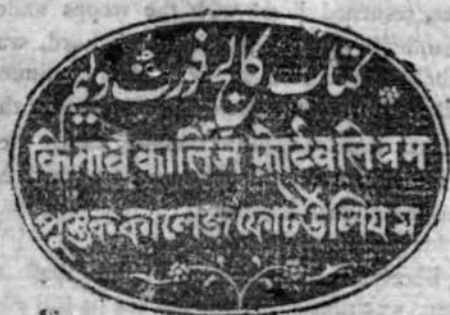 کتاب کالج فورٿ ولیم
किताबै कालिज फ़ोर्टवलियम
পুস্তক কালেজ ফোর্টউলিযম